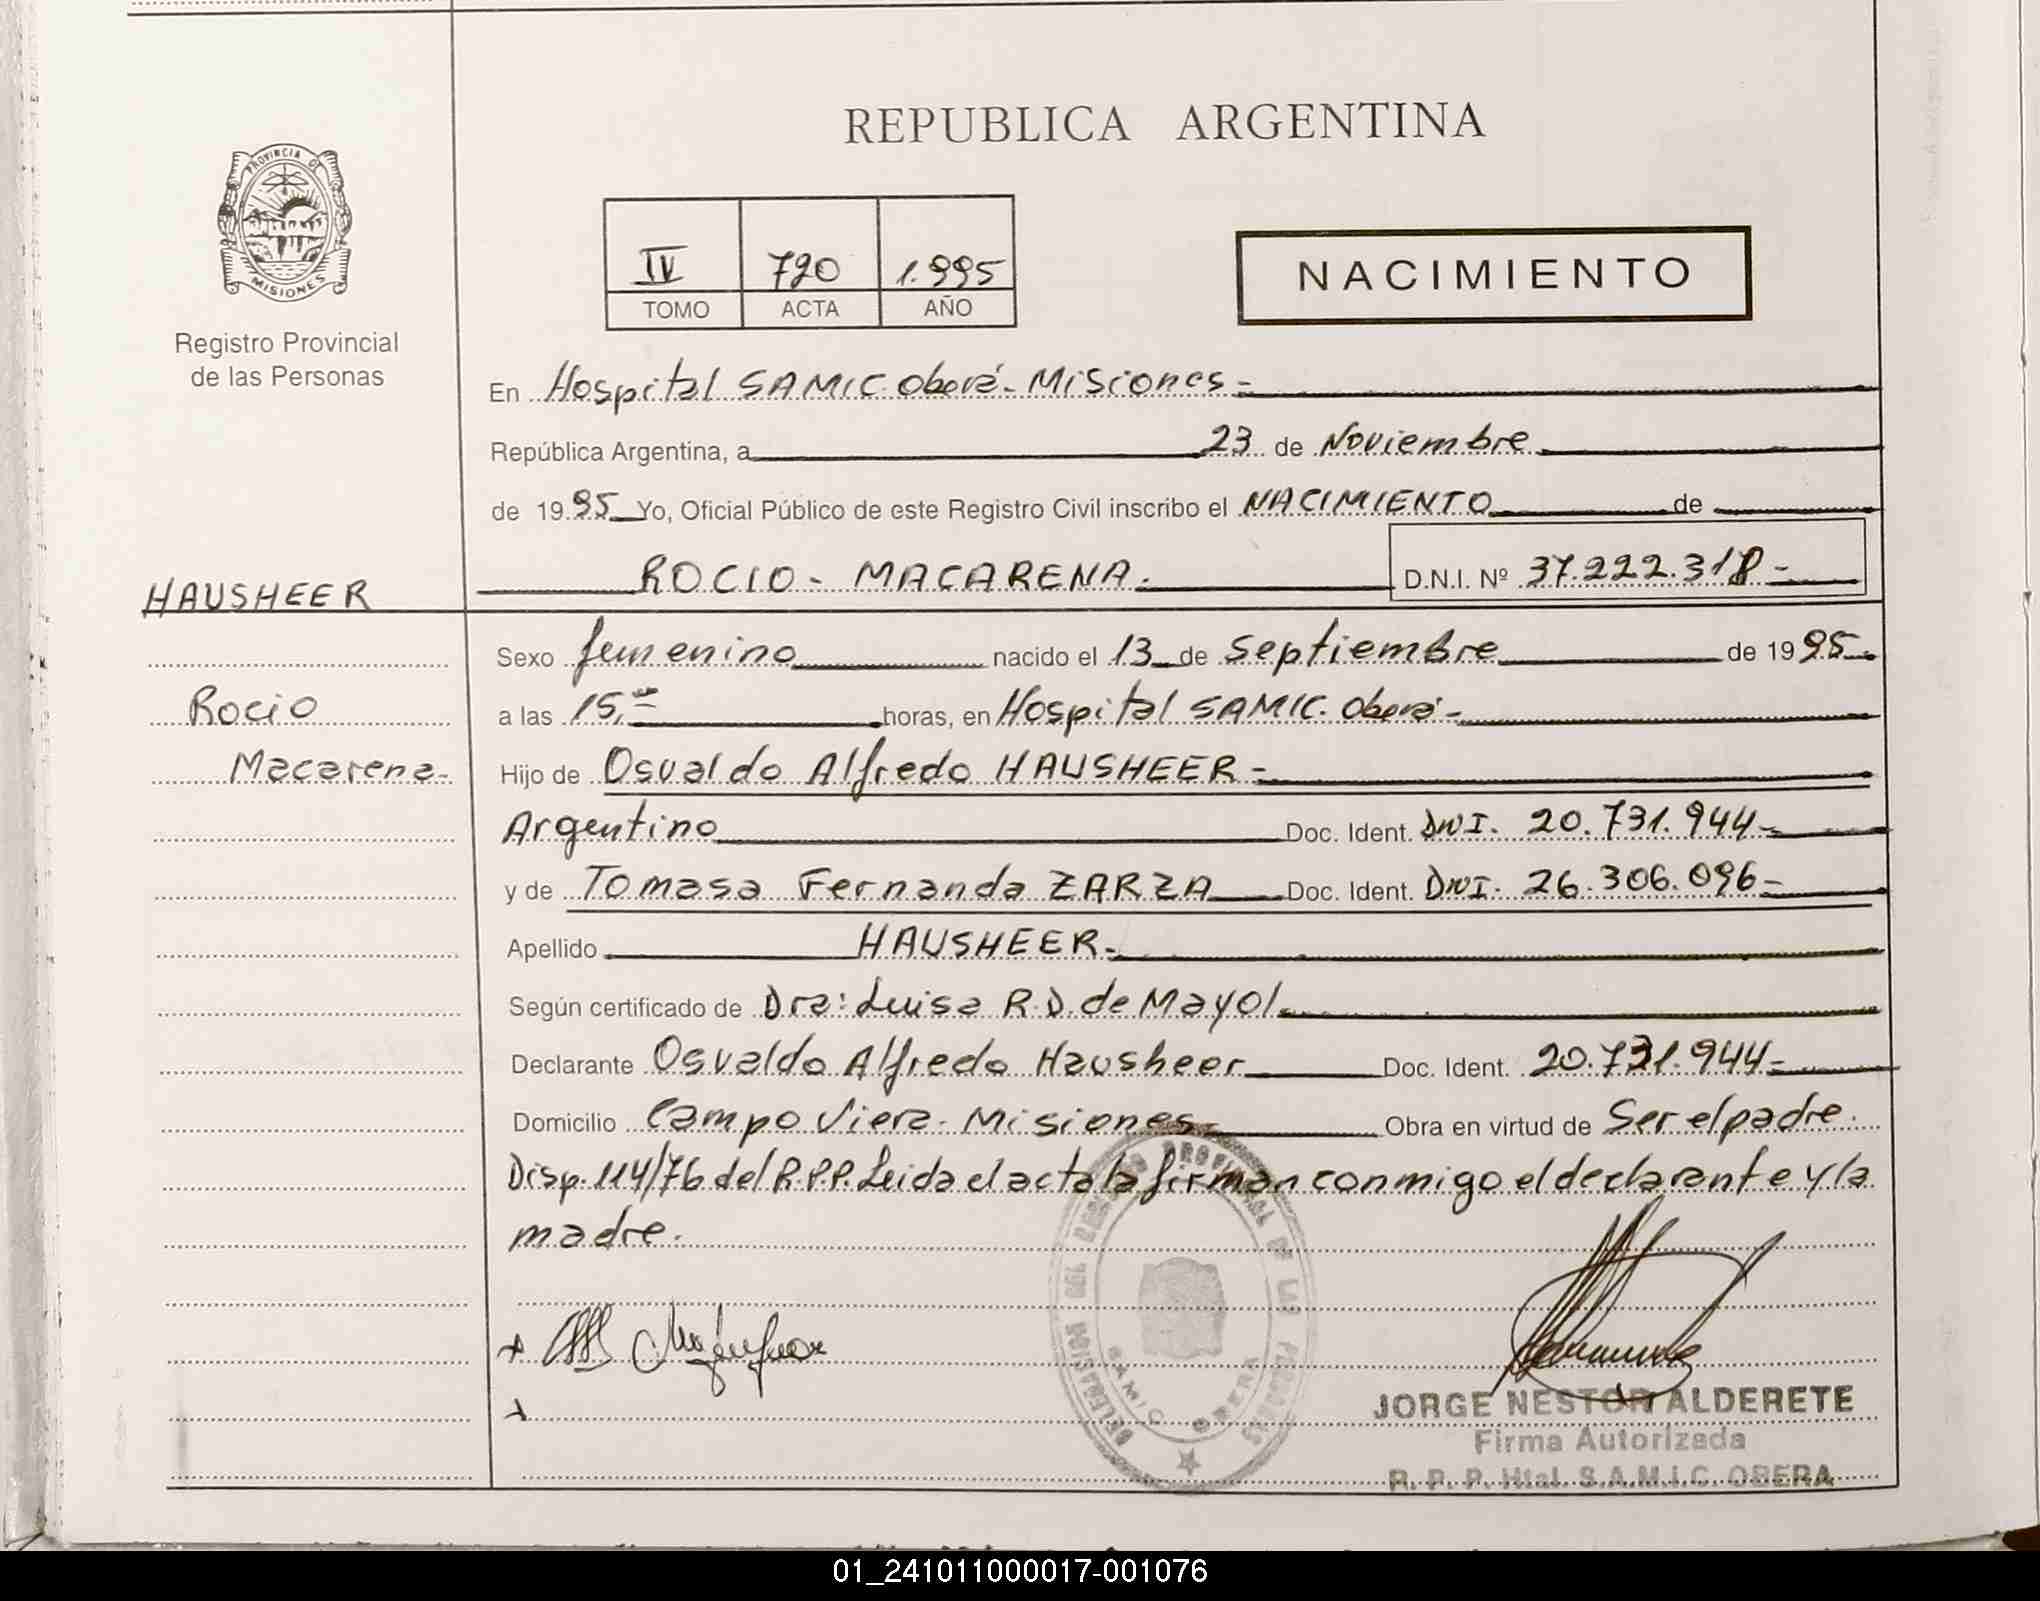 REPUBLICA ARGENTINA
PROVINCIA DE
MISIONES
Registro Provincial
de las Personas
IV 720 1.995
TOMO ACTA AÑO
NACIMIENTO
En Hospital SAMIC. Oberá - Misiones -
República Argentina, a 23 de Noviembre
de 1995 Yo, Oficial Público de este Registro Civil inscribo el NACIMIENTO de
ROCIO - MACARENA. D.N.I. Nº 37.222.318 -
HAUSHEER
Sexo femenino nacido el 13 de Septiembre de 1995
Rocio
a las 15, horas, en Hospital SAMIC. Oberá -
Macarena -
Hijo de Osvaldo Alfredo HAUSHEER -
Argentino Doc. Ident. DNI. 20.731.944 -
y de Tomasa Fernanda ZARZA Doc. Ident. DNI. 26.306.096 -
Apellido HAUSHEER.
Según certificado de Dra: Luisa R.D. de Mayol
Declarante Osvaldo Alfredo Hausheer Doc. Ident. 20.731.944 -
Domicilio Campo Viera - Misiones Obra en virtud de Ser el padre.
Disp. 114/76 del R.P.P. Leida el acta la firman conmigo el declarante y la
madre.
DELEGACION DEL REGISTRO PROVINCIAL DE LAS PERSONAS
SAMIC OBERA
JORGE NESTOR ALDERETE
Firma Autorizada
R. P. P. Htal. S.A.M.I.C. OBERA
01_241011000017-001076